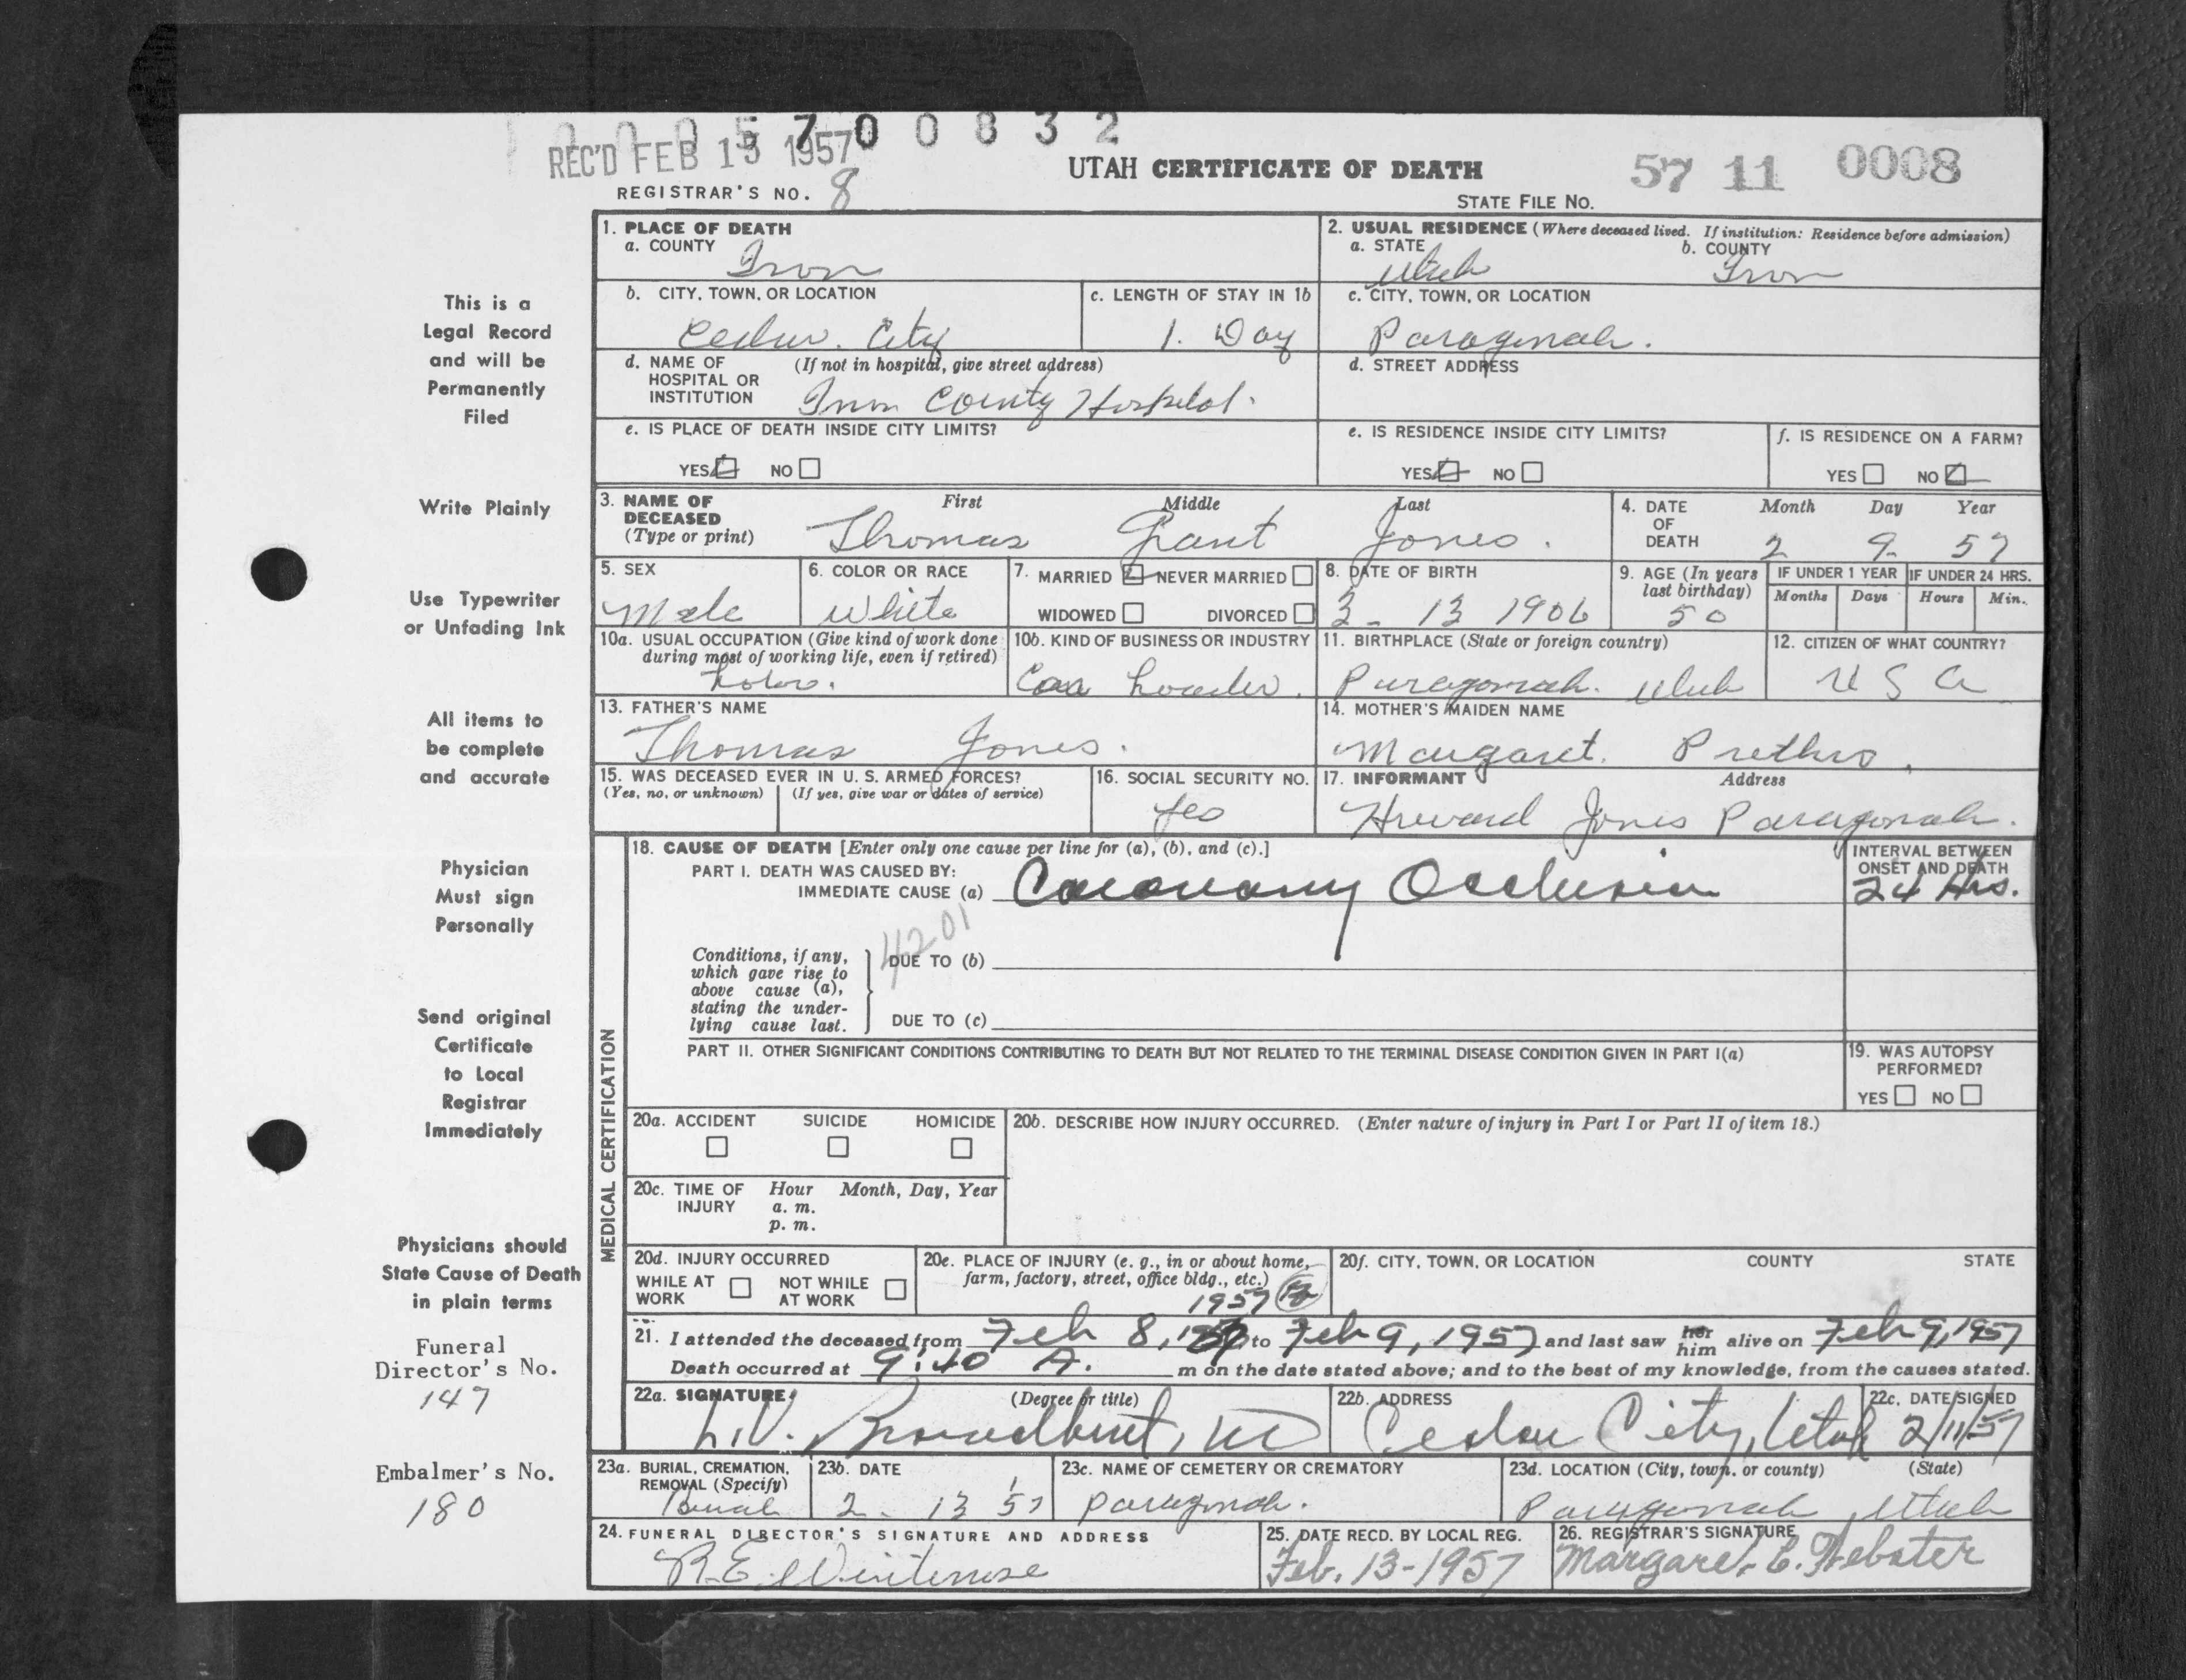 0 0 0 5 7 0 0 8 3 2
REC'D FEB 13 1957
UTAH CERTIFICATE OF DEATH
57 11 0008
REGISTRAR'S NO. 8
STATE FILE NO.
This is a
Legal Record
and will be
Permanently
Filed
Write Plainly
Use Typewriter
or Unfading Ink
All items to
be complete
and accurate
Physician
Must sign
Personally
Send original
Certificate
to Local
Registrar
Immediately
Physicians should
State Cause of Death
in plain terms
Funeral
Director's No.
147
Embalmer's No.
180
1. PLACE OF DEATH
a. COUNTY
Iron
2. USUAL RESIDENCE (Where deceased lived. If institution: Residence before admission)
a. STATE b. COUNTY
Utah Iron
b. CITY, TOWN, OR LOCATION
Cedar. City
c. LENGTH OF STAY IN 1b
1. Day
c. CITY, TOWN, OR LOCATION
Paragonah.
d. NAME OF (If not in hospital, give street address)
HOSPITAL OR
INSTITUTION Iron County Hospital.
d. STREET ADDRESS
e. IS PLACE OF DEATH INSIDE CITY LIMITS?
YES NO
e. IS RESIDENCE INSIDE CITY LIMITS?
YES NO
f. IS RESIDENCE ON A FARM?
YES NO
3. NAME OF First Middle Last
DECEASED
(Type or print) Thomas Grant Jones.
4. DATE Month Day Year
OF
DEATH 2 9 57
5. SEX
Male
6. COLOR OR RACE
White
7. MARRIED NEVER MARRIED
WIDOWED DIVORCED
8. DATE OF BIRTH
3 - 13 1906
9. AGE (In years
last birthday)
50
IF UNDER 1 YEAR
Months Days
IF UNDER 24 HRS.
Hours Min.
10a. USUAL OCCUPATION (Give kind of work done
during most of working life, even if retired)
Labor.
10b. KIND OF BUSINESS OR INDUSTRY
Loader.
11. BIRTHPLACE (State or foreign country)
Paragonah. Utah
12. CITIZEN OF WHAT COUNTRY?
U S A
13. FATHER'S NAME
Thomas Jones.
14. MOTHER'S MAIDEN NAME
Margaret. Prethro.
15. WAS DECEASED EVER IN U. S. ARMED FORCES?
(Yes, no, or unknown) (If yes, give war or dates of service)
16. SOCIAL SECURITY NO.
Yes
17. INFORMANT Address
Howard Jones Paragonah.
MEDICAL CERTIFICATION
18. CAUSE OF DEATH [Enter only one cause per line for (a), (b), and (c).]
PART I. DEATH WAS CAUSED BY:
IMMEDIATE CAUSE (a) Coronary Occlusion
INTERVAL BETWEEN
ONSET AND DEATH
24 Hrs.
4201
Conditions, if any,
which gave rise to
above cause (a),
stating the under-
lying cause last.
DUE TO (b)
DUE TO (c)
PART II. OTHER SIGNIFICANT CONDITIONS CONTRIBUTING TO DEATH BUT NOT RELATED TO THE TERMINAL DISEASE CONDITION GIVEN IN PART I(a)
19. WAS AUTOPSY
PERFORMED?
YES NO
20a. ACCIDENT SUICIDE HOMICIDE
20b. DESCRIBE HOW INJURY OCCURRED. (Enter nature of injury in Part I or Part II of item 18.)
20c. TIME OF Hour Month, Day, Year
INJURY a. m.
p. m.
20d. INJURY OCCURRED
WHILE AT NOT WHILE
WORK AT WORK
20e. PLACE OF INJURY (e. g., in or about home,
farm, factory, street, office bldg., etc.)
1957
20f. CITY, TOWN, OR LOCATION COUNTY STATE
21. I attended the deceased from Feb 8, to Feb 9, 1957 and last saw her him alive on Feb 9, 1957
Death occurred at 9:40 A. m on the date stated above; and to the best of my knowledge, from the causes stated.
22a. SIGNATURE (Degree or title)
L.V. Broadbent, MD
22b. ADDRESS
Cedar City, Utah
22c. DATE SIGNED
2/11/57
23a. BURIAL, CREMATION,
REMOVAL (Specify)
Burial
23b. DATE
2. 13 57
23c. NAME OF CEMETERY OR CREMATORY
Paragonah.
23d. LOCATION (City, town, or county) (State)
Paragonah Utah
24. FUNERAL DIRECTOR'S SIGNATURE AND ADDRESS
R.E. Winterrose
25. DATE RECD. BY LOCAL REG.
Feb. 13-1957
26. REGISTRAR'S SIGNATURE
Margaret E. Webster